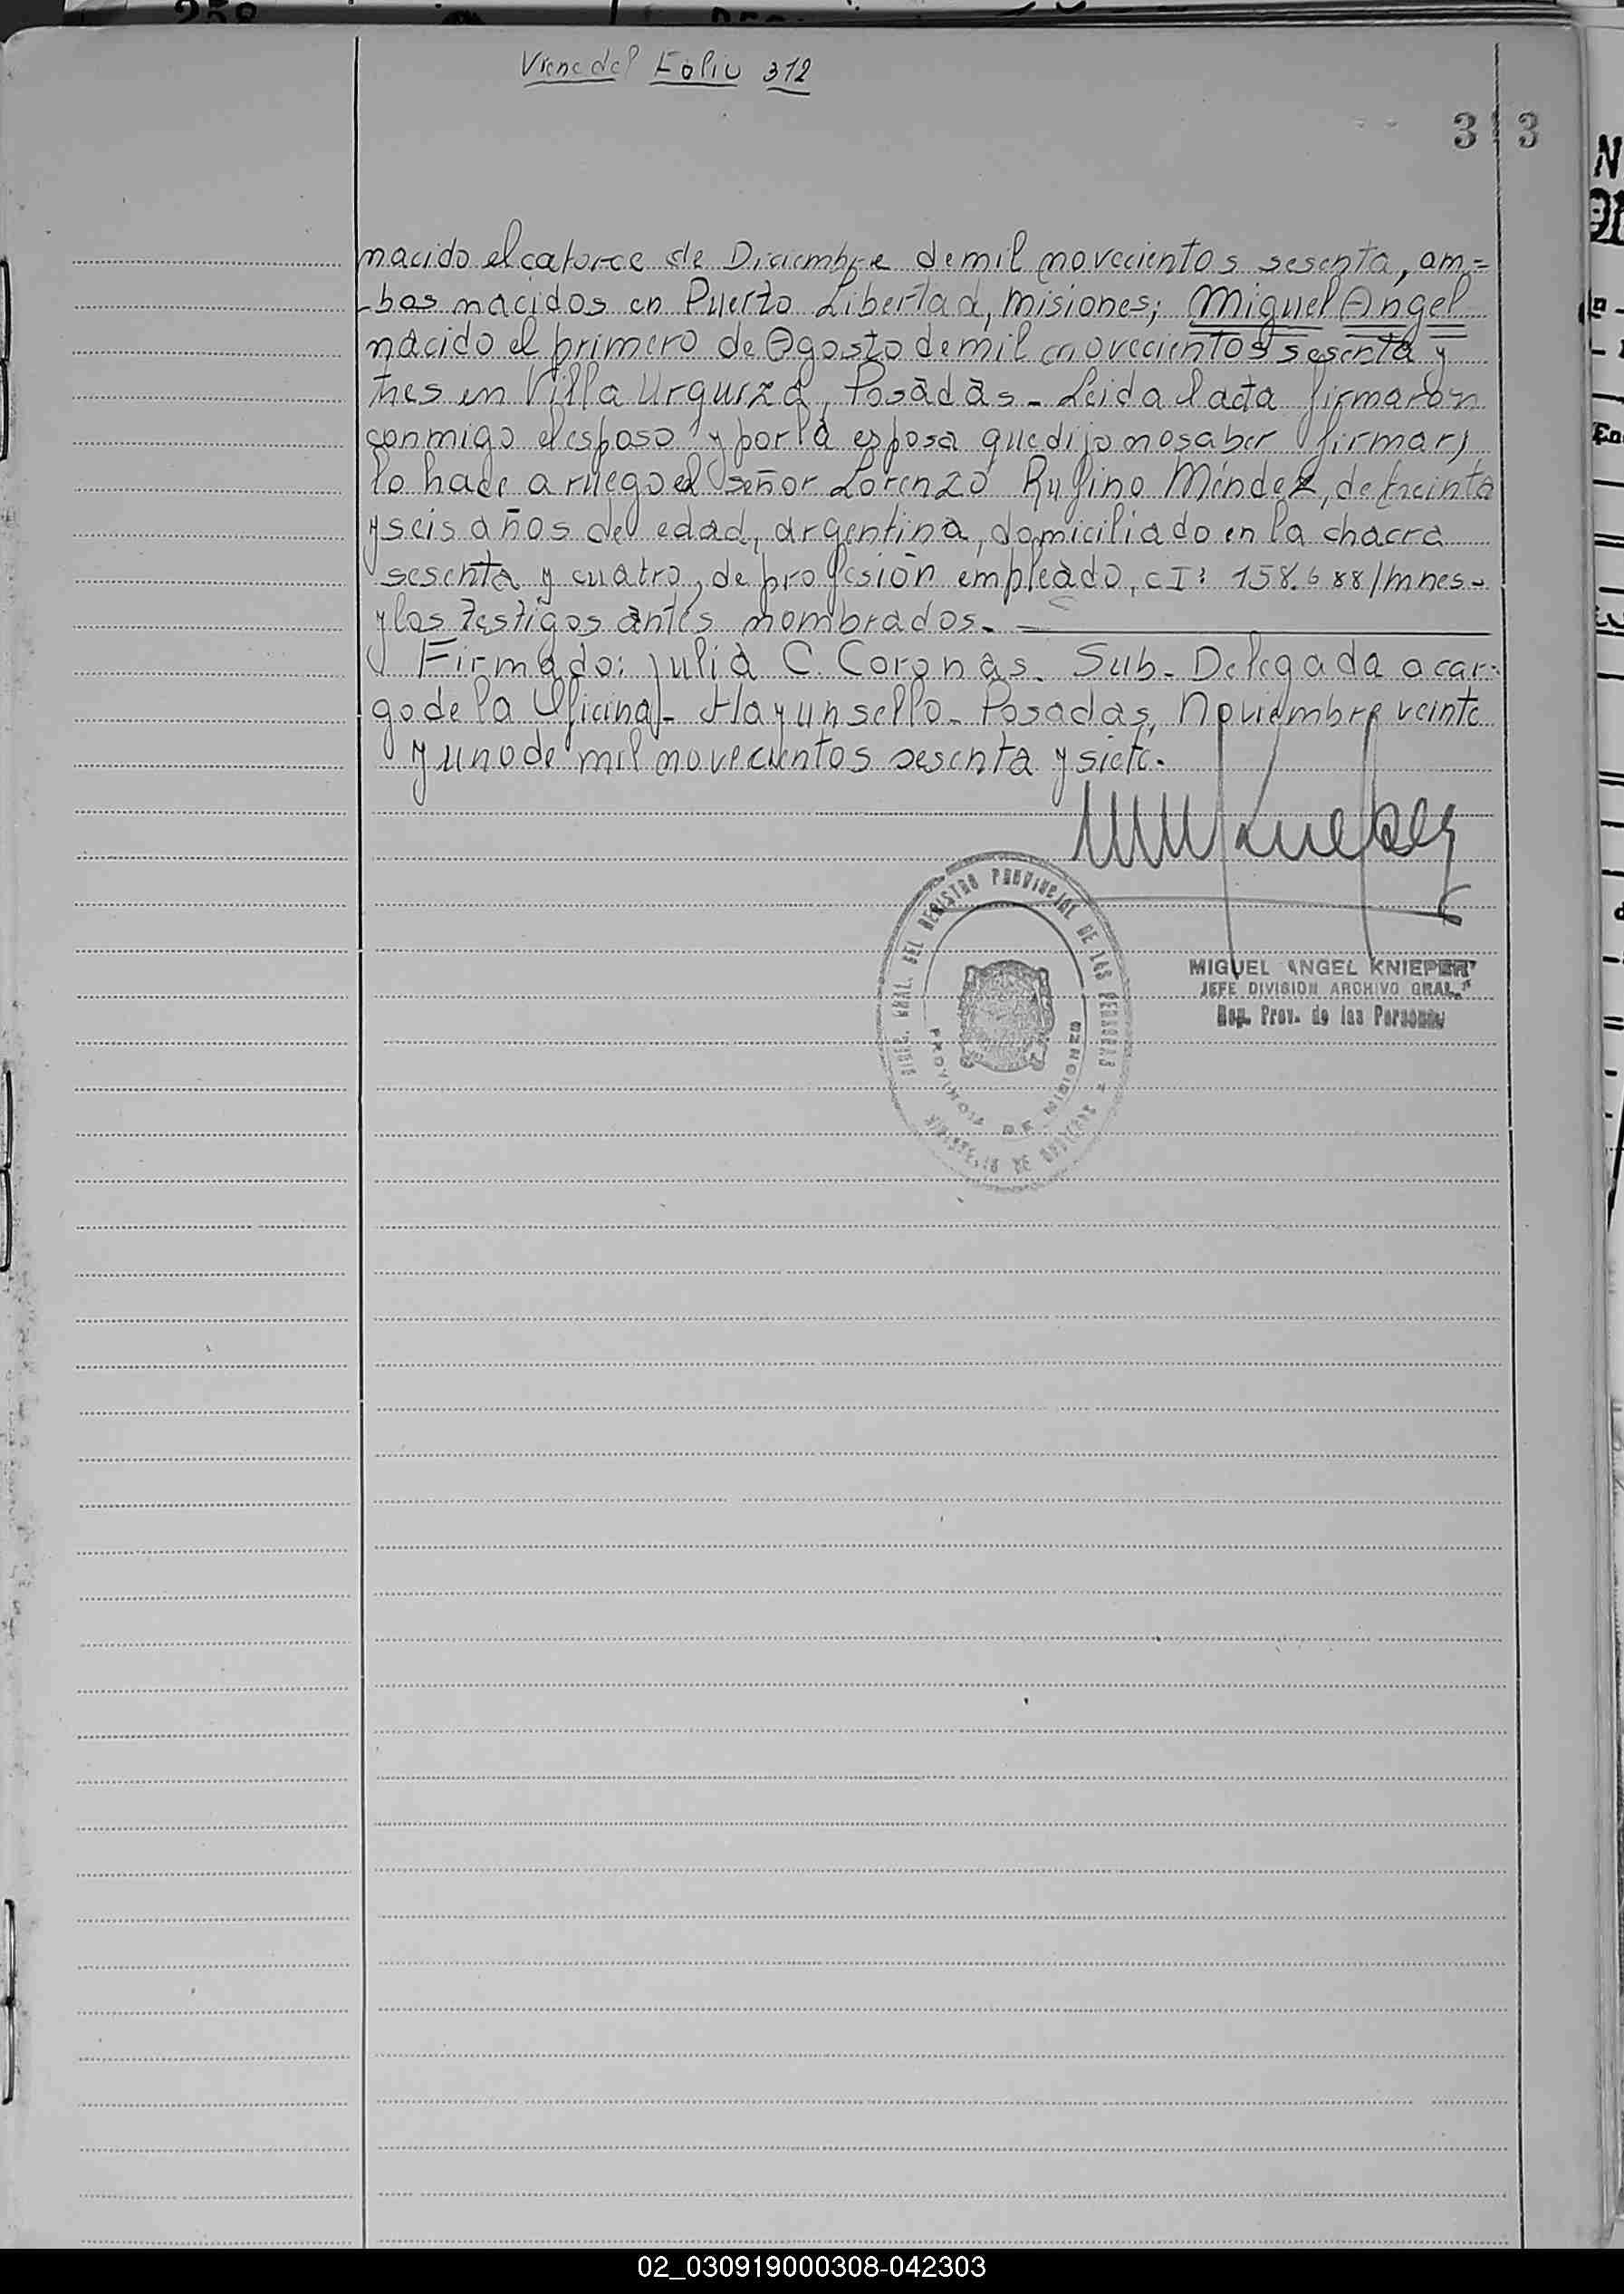 Viene del Folio 312
313
nacido el catorce de Diciembre de mil novecientos sesenta, am=
-bos nacidos en Puerto Libertad, Misiones; Miguel Angel
nacido el primero de Agosto de mil novecientos sesenta y
tres en Villa Urquiza, Posadas - Leida el acta firmaron
conmigo el esposo y por la esposa que dijo no saber firmar,
lo hace a ruego el señor Lorenzo Rufino Méndez, de treinta
y seis años de edad, argentina, domiciliado en la chacra
sesenta y cuatro, de profesión empleado, CI: 158.688/mnes-
y los testigos antes nombrados.-
Firmado: Julia C. Coronas. Sub-Delegada a car-
go de la Oficina - Hay un sello - Posadas, Noviembre veinte
y uno de mil novecientos sesenta y siete.
MIGUEL ANGEL KNIEPER
JEFE DIVISION ARCHIVO GRAL.
Reg. Prov. de las Personas
DIREC. GRAL. DEL REGISTRO PROVINCIAL DE LAS PERSONAS
PROVINCIA DE MISIONES
02_030919000308-042303